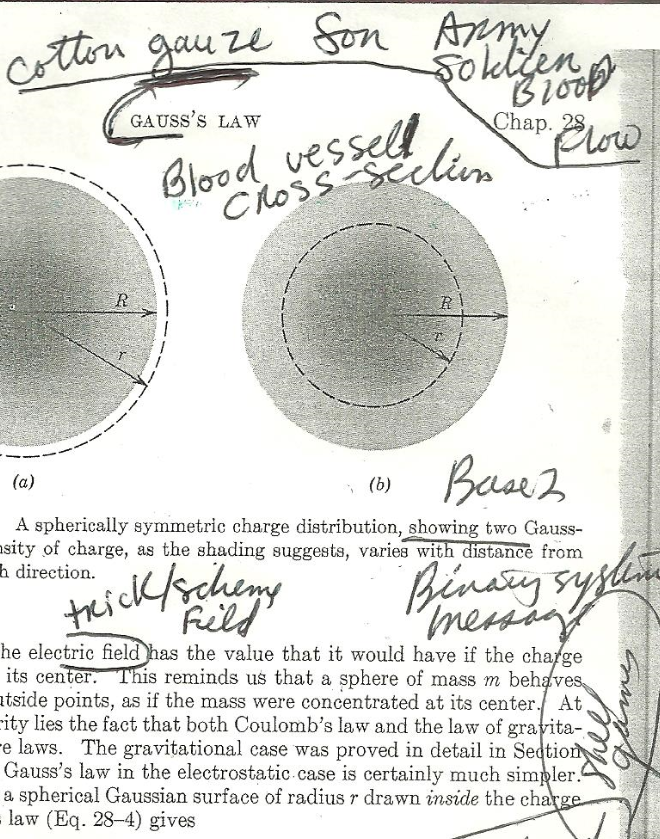 cotton gauze Son Army
Soldier
Blood
Flow
GAUSS'S LAW Chap. 28
Blood vessel
Cross-section
R
r
R
r
(a)
(b)
Base 2
A spherically symmetric charge distribution, showing two Gauss-
nsity of charge, as the shading suggests, varies with distance from
h direction.
trick/scheme
Field
Binary system
message
he electric field has the value that it would have if the charge
its center. This reminds us that a sphere of mass m behaves
utside points, as if the mass were concentrated at its center. At
rity lies the fact that both Coulomb's law and the law of gravita-
re laws. The gravitational case was proved in detail in Section
Gauss's law in the electrostatic case is certainly much simpler.
a spherical Gaussian surface of radius r drawn inside the charge
s law (Eq. 28–4) gives
shell
games